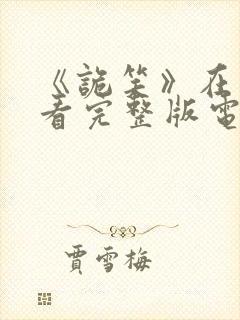 《詭笑》在
看完整版電
賈雪梅